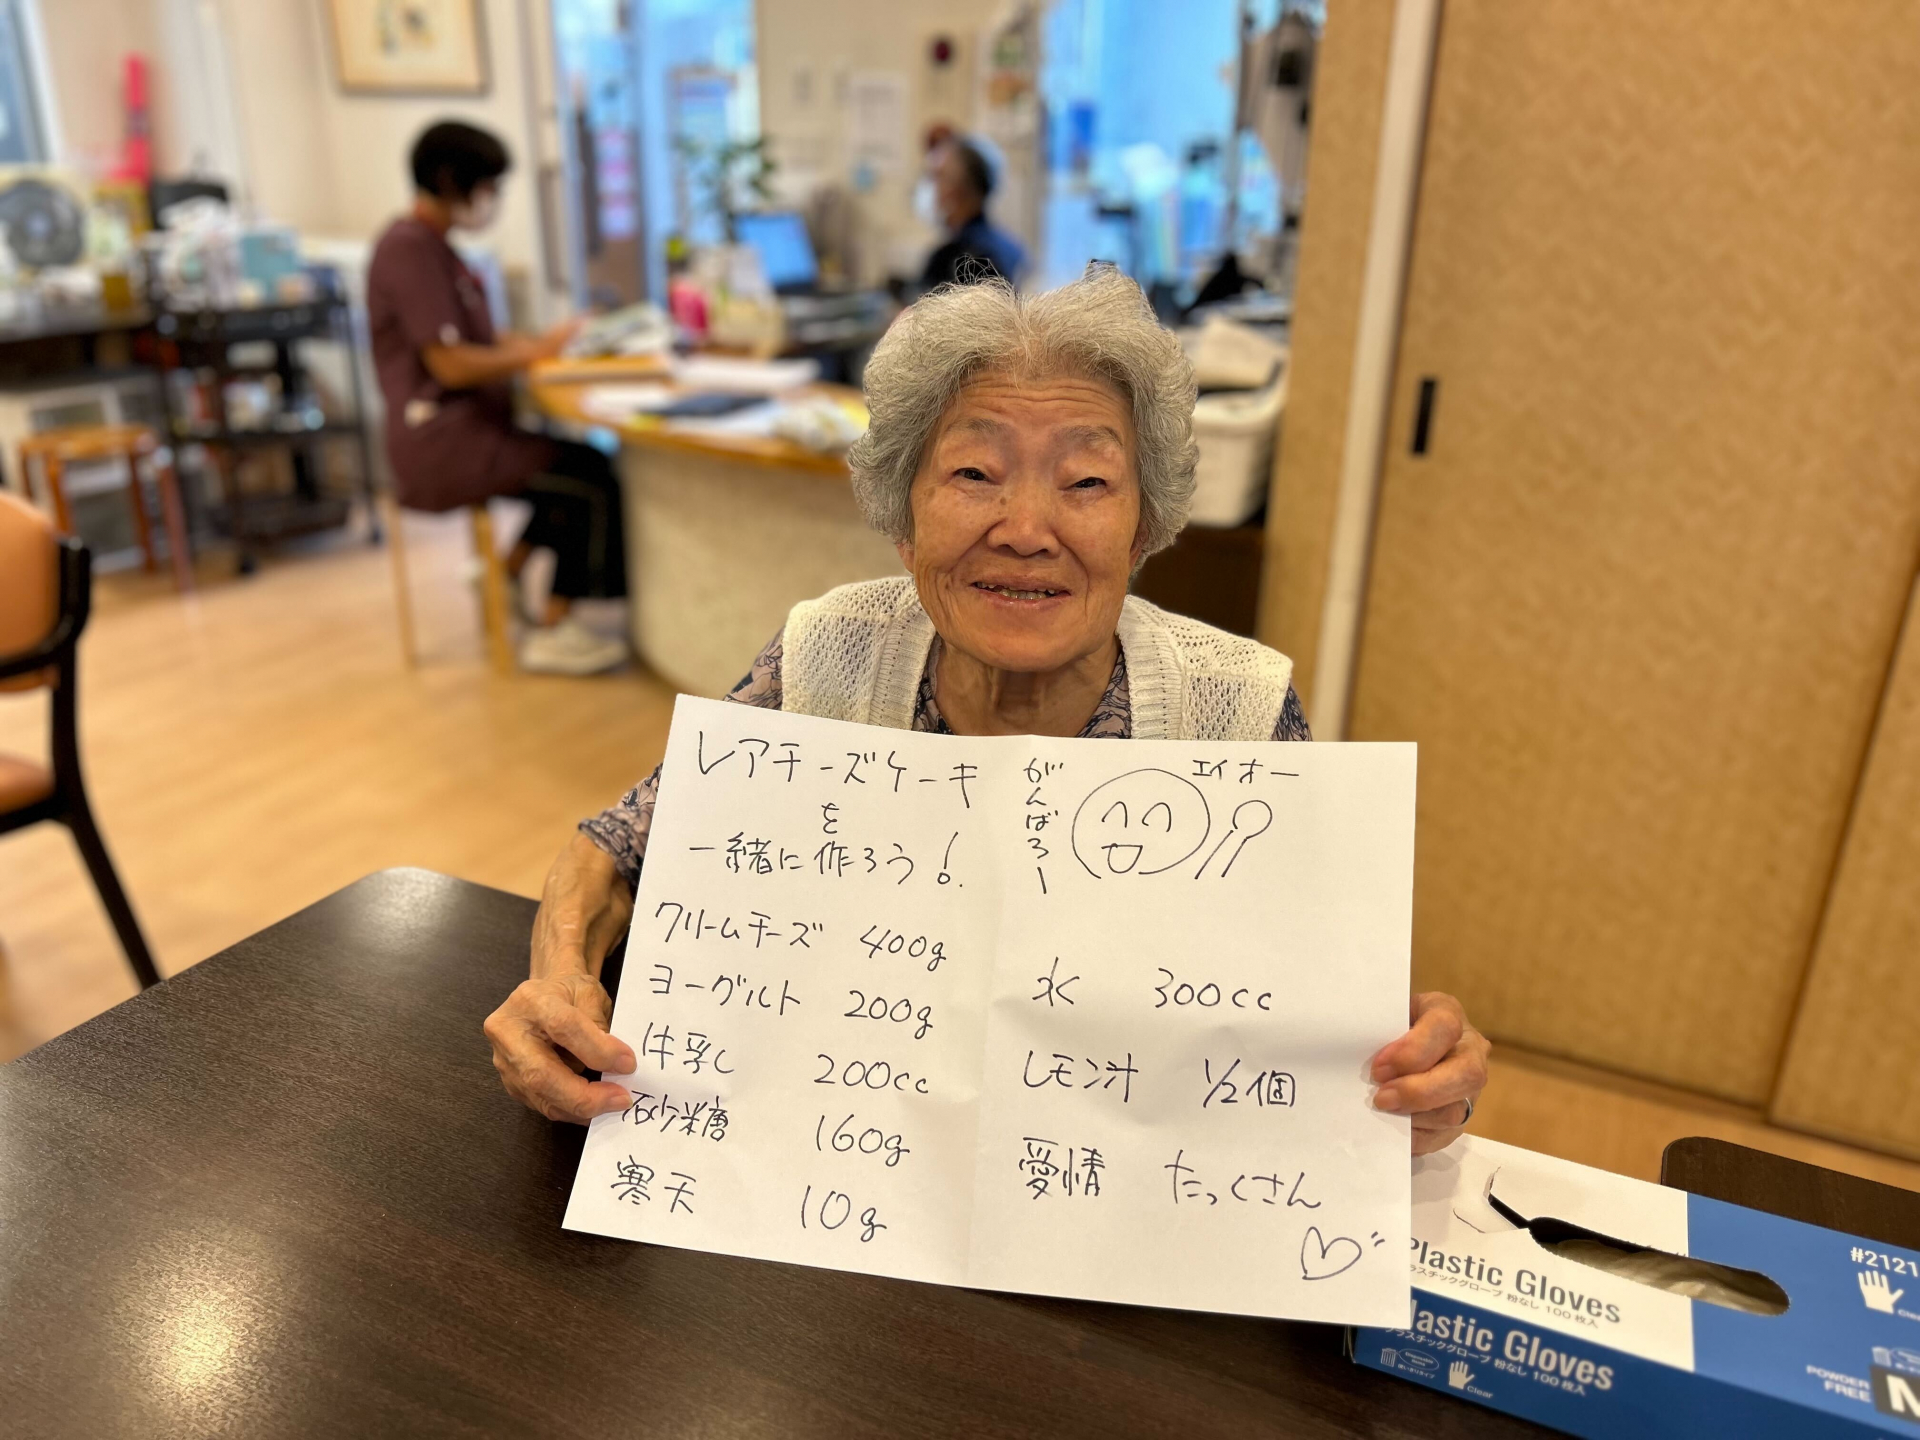 レアチーズケーキ
を
一緒に作ろう!
クリームチーズ 400g
ヨーグルト 200g
牛乳 200cc
砂糖 160g
寒天 10g
がんばろー
エイオー
水 300cc
レモン汁 1/2個
愛情 たっくさん
Plastic Gloves
プラスチックグローブ 粉なし 100枚入
#2121
Plastic Gloves
プラスチックグローブ 粉なし 100枚入
Clear
POWDER
FREE
M